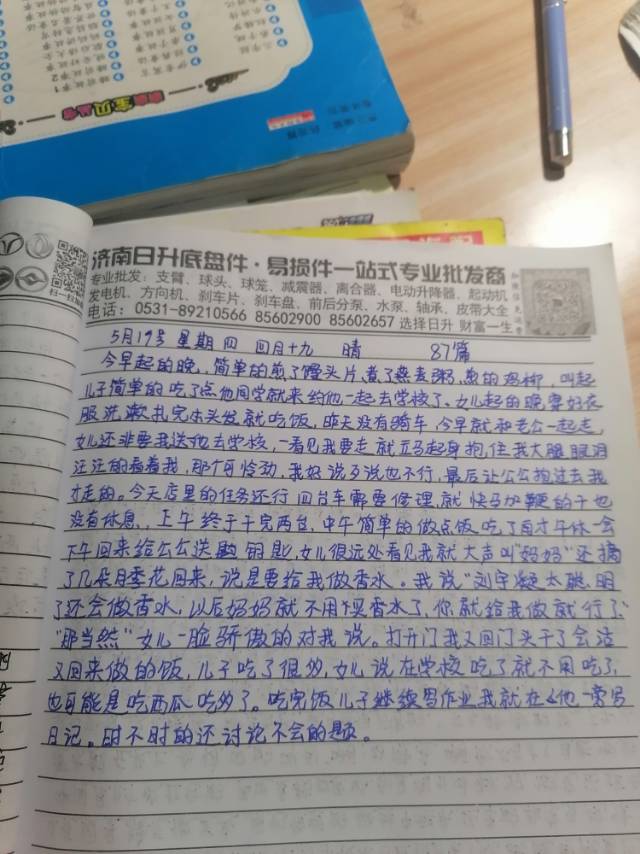 济南日升底盘件·易损件一站式专业批发商
专业批发：支臂、球头、球笼、减震器、离合器、电动升降器、起动机
发电机、方向机、刹车片、刹车盘、前后分泵、水泵、轴承、皮带大全
电话：0531-89210566 85602900 85602657 选择日升 财富一生
5月19号 星期四 四月十九 晴 87篇
今早起的晚，简单的煎了馒头片，煮了燕麦粥，叫起
儿子简单的吃了点他同学就来约他一起去学校了。女儿起的晚穿好衣
服洗漱扎完头发就吃饭，昨天没有骑车，今早就和老公一起走，
女儿还非要我送他去学校，一看见我要走就立马起身抱住我大腿眼泪
汪汪的看着我，那个可怜劲，我好说歹说也不行，最后让公公抱过去我
才走的。今天店里的任务还行四台车需要修理，就快马加鞭的干也
没有休息，上午终于干完两台，中午简单的做点饭吃了自才午休一会
下午回来给公公送钥匙，女儿很远处看见我就大声叫“妈妈”还摘
了几朵月季花回来，说是要给我做香水。我说“刘宇凝太聪明
了还会做香水，以后妈妈就不用买香水了，你就给我做就行了”
“那当然”女儿一脸骄傲的对我说。打开门我又回门头干了会活
又回来做的饭，儿子吃了很多，女儿说在学校吃了就不用吃了，
也可能是吃西瓜吃多了。吃完饭儿子继续写作业我就在他一旁写
日记。时不时的还讨论不会的题。